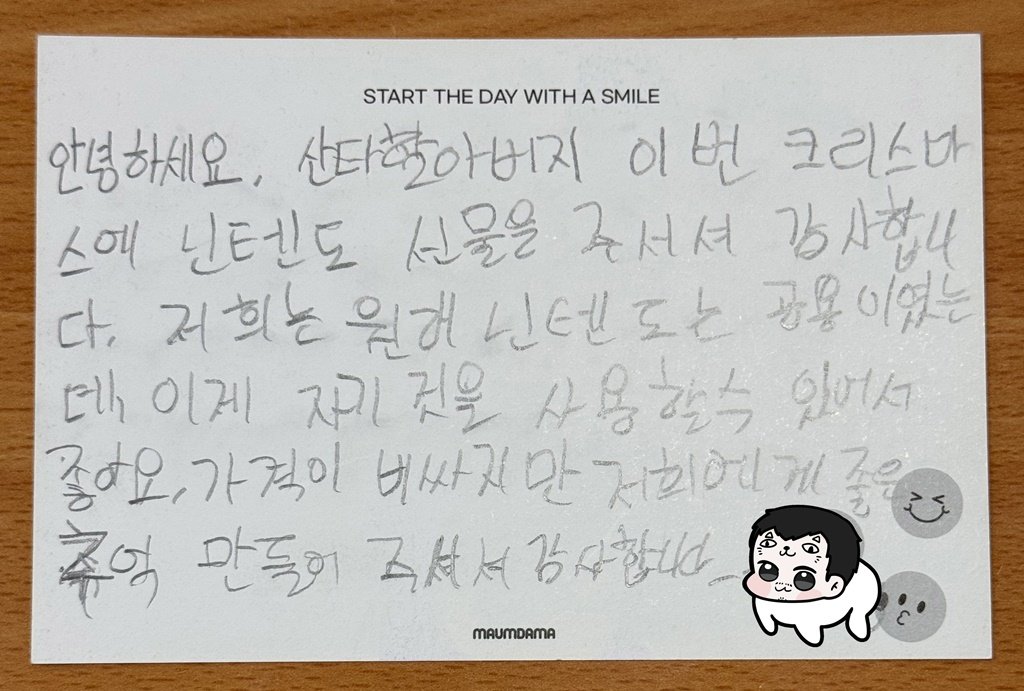 START THE DAY WITH A SMILE
안녕하세요, 산타할아버지 이 번 크리스마
스에 닌텐도 선물을 주셔서 감사합니
다. 저희는 원래 닌텐도는 공용이였는
데, 이제 자기 것을 사용할수 있어서
좋아요, 가격이 비싸지만 저희에게 좋은
추억 만들어 주셔서 감사합니다
MAUMDAMA